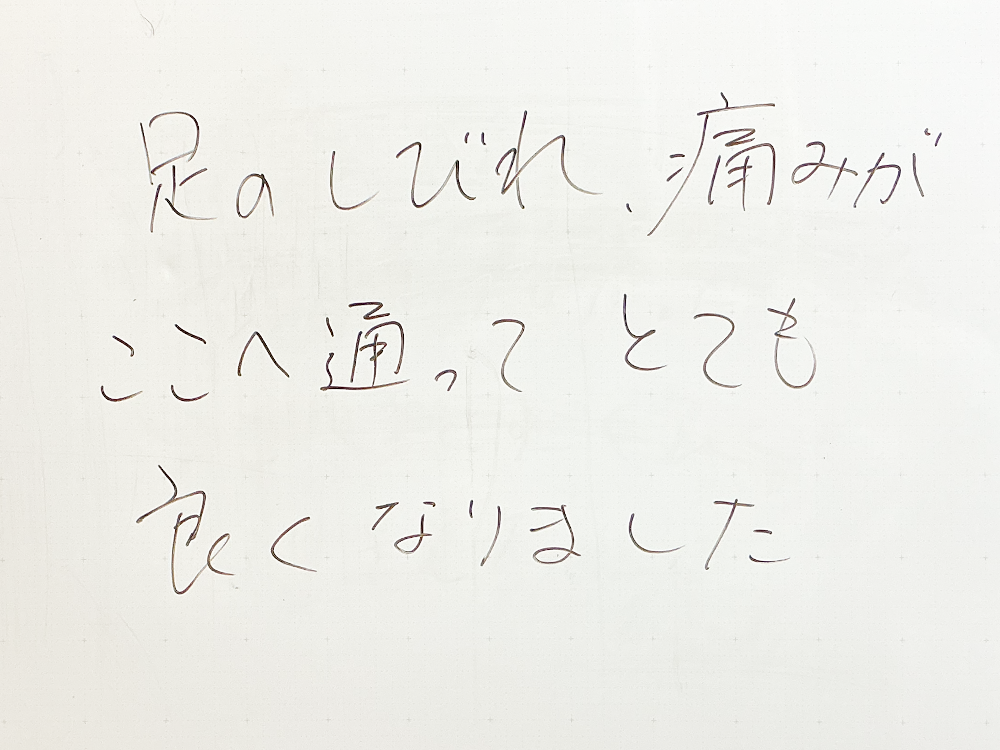 足のしびれ、痛みが
ここへ通って とても
良くなりました